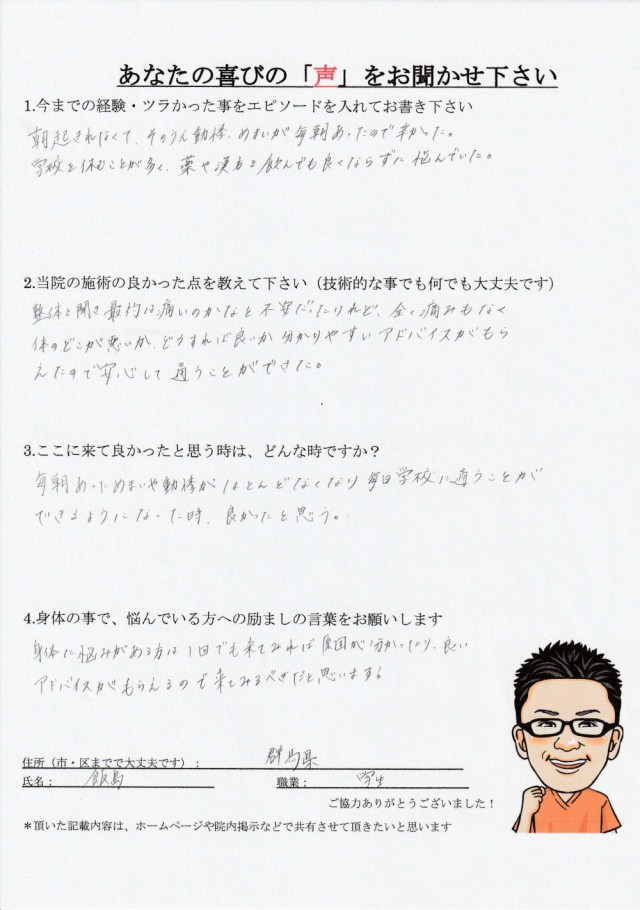 あなたの喜びの「声」をお聞かせ下さい
1.今までの経験・ツラかった事をエピソードを入れてお書き下さい
朝起きれなくて、そのうえ動悸、めまいが毎朝あったので辛かった。
学校を休むことが多く、薬や漢方を飲んでも良くならずに悩んでいた。
2.当院の施術の良かった点を教えて下さい（技術的な事でも何でも大丈夫です）
整体と聞き最初は痛いのかなと不安だったけれど、全く痛みもなく
体のどこが悪いか、どうすれば良いか分かりやすいアドバイスがもら
えたので安心して通うことができた。
3.ここに来て良かったと思う時は、どんな時ですか？
毎朝あっためまいや動悸がほとんどなくなり毎日学校に通うことが
できるようになった時、良かったと思う。
4.身体の事で、悩んでいる方への励ましの言葉をお願いします
身体に悩みがある方は1回でも来てみれば原因が分かったり、良い
アドバイスがもらえるので来てみるべきだと思います！
住所（市・区までで大丈夫です）： 群馬県
氏名： 飯島 職業： 学生
ご協力ありがとうございました！
＊頂いた記載内容は、ホームページや院内掲示などで共有させて頂きたいと思います